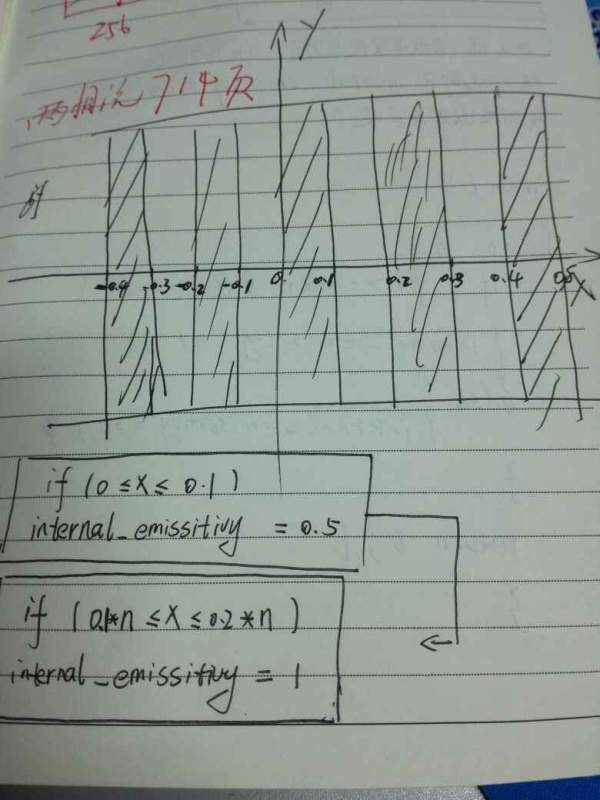 256
Y
714页
-0.4 -0.3 -0.2 -0.1 0 0.1 0.2 0.3 0.4 0.5
X
if (0 ≤ x ≤ 0.1)
internal_emissitivy = 0.5
if (0.1*n ≤ x ≤ 0.2*n)
internal_emissitivy = 1